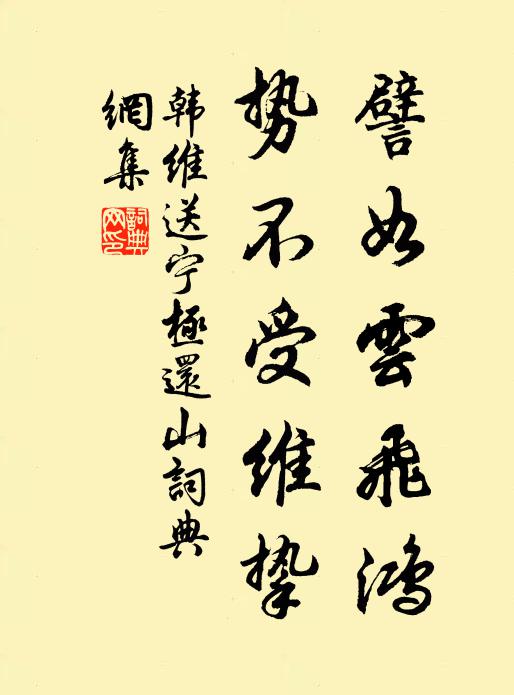 譬如雲飛鴻
势不受維挚
韩維送宁極還山詞典
網集
詞典网印